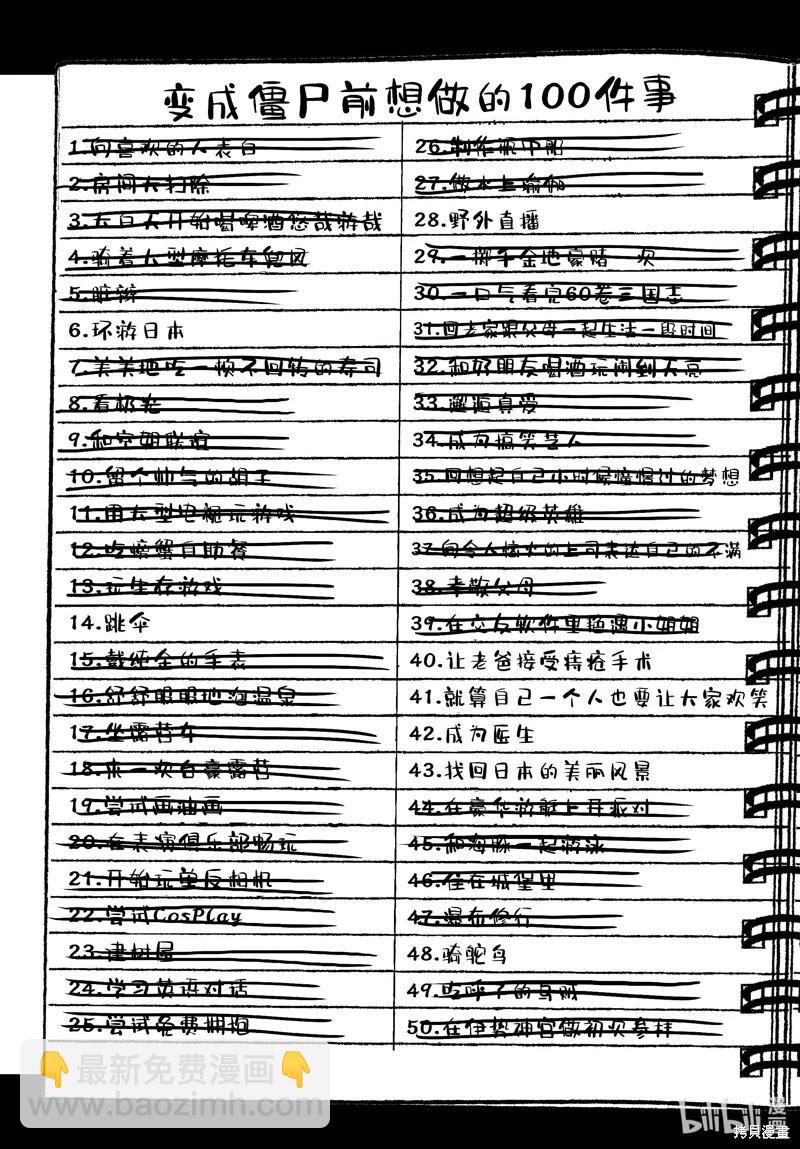 变成僵尸前想做的100件事
1.向喜欢的人表白
2.房间大扫除
3.大白天开始喝啤酒悠哉游哉
4.骑着大型摩托车兜风
5.脏辫
6.环游日本
7.美美地吃一顿不回转的寿司
8.看极光
9.和空姐联谊
10.留个帅气的胡子
11.用大型电视玩游戏
12.吃螃蟹自助餐
13.玩生存游戏
14.跳伞
15.戴纯金的手表
16.舒舒服服地泡温泉
17.坐露营车
18.来一次自豪露营
19.尝试画油画
20.在表演俱乐部畅玩
21.开始玩单反相机
22.尝试CosPlay
23.建树屋
24.学习英语对话
25.尝试免费拥抱
26.制作瓶中船
27.做水上瑜伽
28.野外直播
29.一掷千金地豪赌一次
30.一口气看完60卷三国志
31.回老家跟父母一起生活一段时间
32.和好朋友喝酒玩闹到天亮
33.邂逅真爱
34.成为搞笑艺人
35.回想起自己小时候憧憬过的梦想
36.成为超级英雄
37.向令人恼火的上司表达自己的不满
38.孝敬父母
39.在交友软件里艳遇小姐姐
40.让老爸接受痔疮手术
41.就算自己一个人也要让大家欢笑
42.成为医生
43.找回日本的美丽风景
44.在豪华游艇上开派对
45.和海豚一起游泳
46.住在城堡里
47.瀑布修行
48.骑鸵鸟
49.吃呼子的乌贼
50.在伊势神宫做初次参拜
最新免费漫画
www.baozimh.com
bilibili
漫画
拷貝漫畫